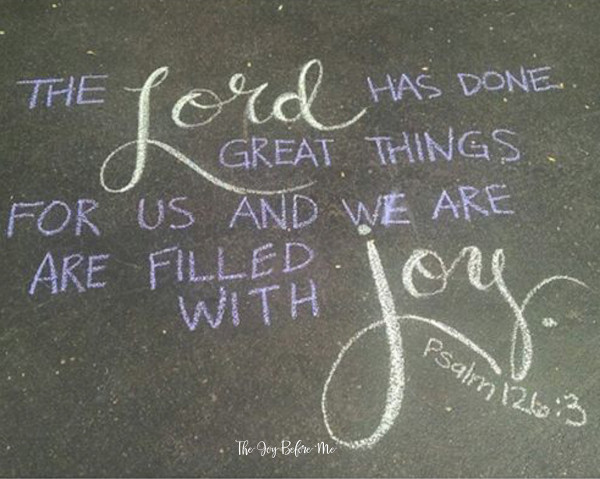 THE Lord HAS DONE
GREAT THINGS
FOR US AND WE ARE
ARE FILLED
WITH joy.
Psalm 126:3
The Joy Before Me